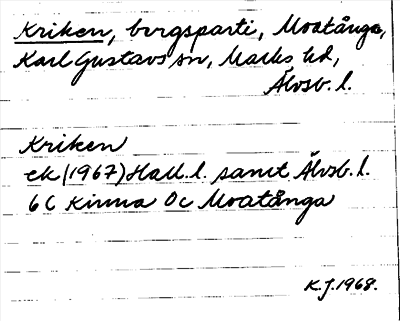 Kriken, bergsparti, Moatånga,
Karl Gustavs sn, Marks hd,
Älvsb. l.
Kriken
ek (1967) Hall. l. samt Älvsb. l.
6 C Kinna 0c Moatånga
K.J. 1968.